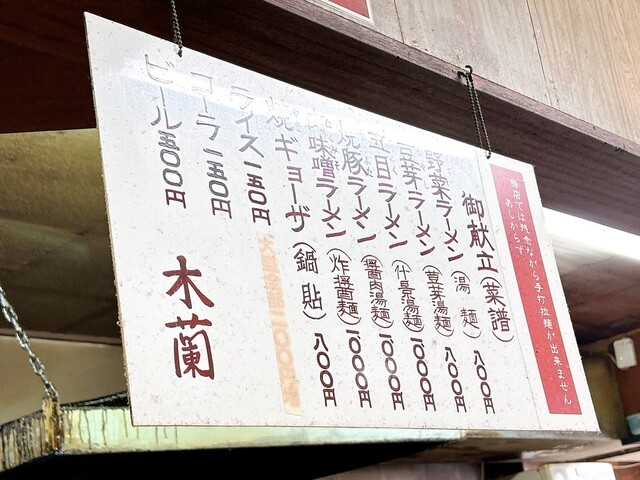 当店では残念ながら手打拉麺が出来ません
あしからず
御献立(菜譜)
野菜ラーメン(湯麺)八〇〇円
豆芽ラーメン(豆芽湯麺)八〇〇円
五目ラーメン(什景湯麺)一〇〇〇円
焼豚ラーメン(醤肉湯麺)一〇〇〇円
味噌ラーメン(炸醤麺)一〇〇〇円
焼ギョーザ(鍋貼)八〇〇円
ライス一五〇円
コーラ一五〇円
ビール五〇〇円
木蘭